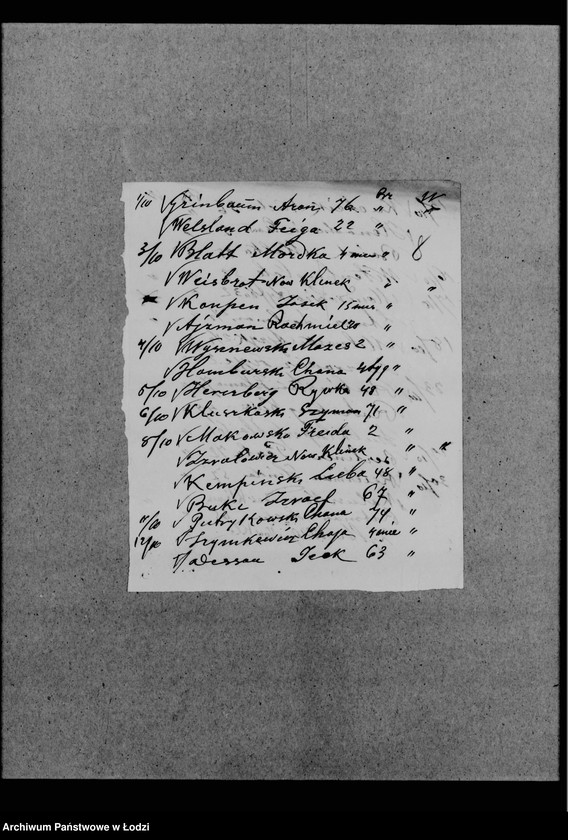 Br W
1/10 Grinbaum Aron 76 "
Welsland Feiga 22 "
3/10 Blatt Mordka 4 mies " 8
Weisbrot Now Klinek " "
Konpen Josek 15 mies "
Ajzman Rachmiel 20 "
4/10 Wyszniewski Mozes 2 "
Hamburski Chana 4 tyg "
5/10 Hercberg Rywka 48 "
6/10 Kluszkoski Szymon 71 "
8/10 Makowska Frajda 2 "
Izralowicz Now Klinek " "
Kempiński Laiba 48 "
Buki Izrael 67 "
11/10 Putrykowski Chana 74 "
12/10 Szymkewicz Chaja 4 mie "
adessau Icek 63 "
Archiwum Państwowe w Łodzi